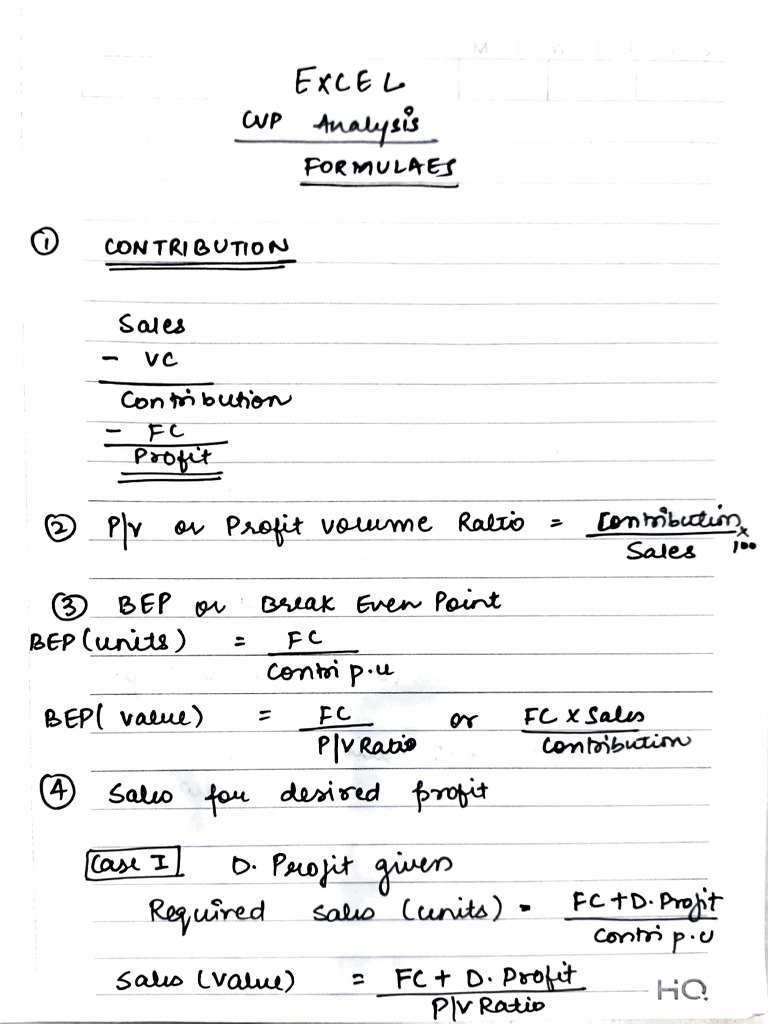 M W S S
EXCEL
CVP Analysis
FORMULAES
① CONTRIBUTION
Sales
- VC
Contribution
- FC
Profit
② P/V or Profit volume Ratio = Contribution / Sales x 100
③ BEP or Break Even Point
BEP (units) = FC / Contri p.u
BEP( value) = FC / P/V Ratio or FC x Sales / Contribution
④ Sales for desired profit
Case I D. Profit given
Required sales (units) = FC + D. Profit / Contri p.u
Sales (value) = FC + D. Profit / P/V Ratio
HQ